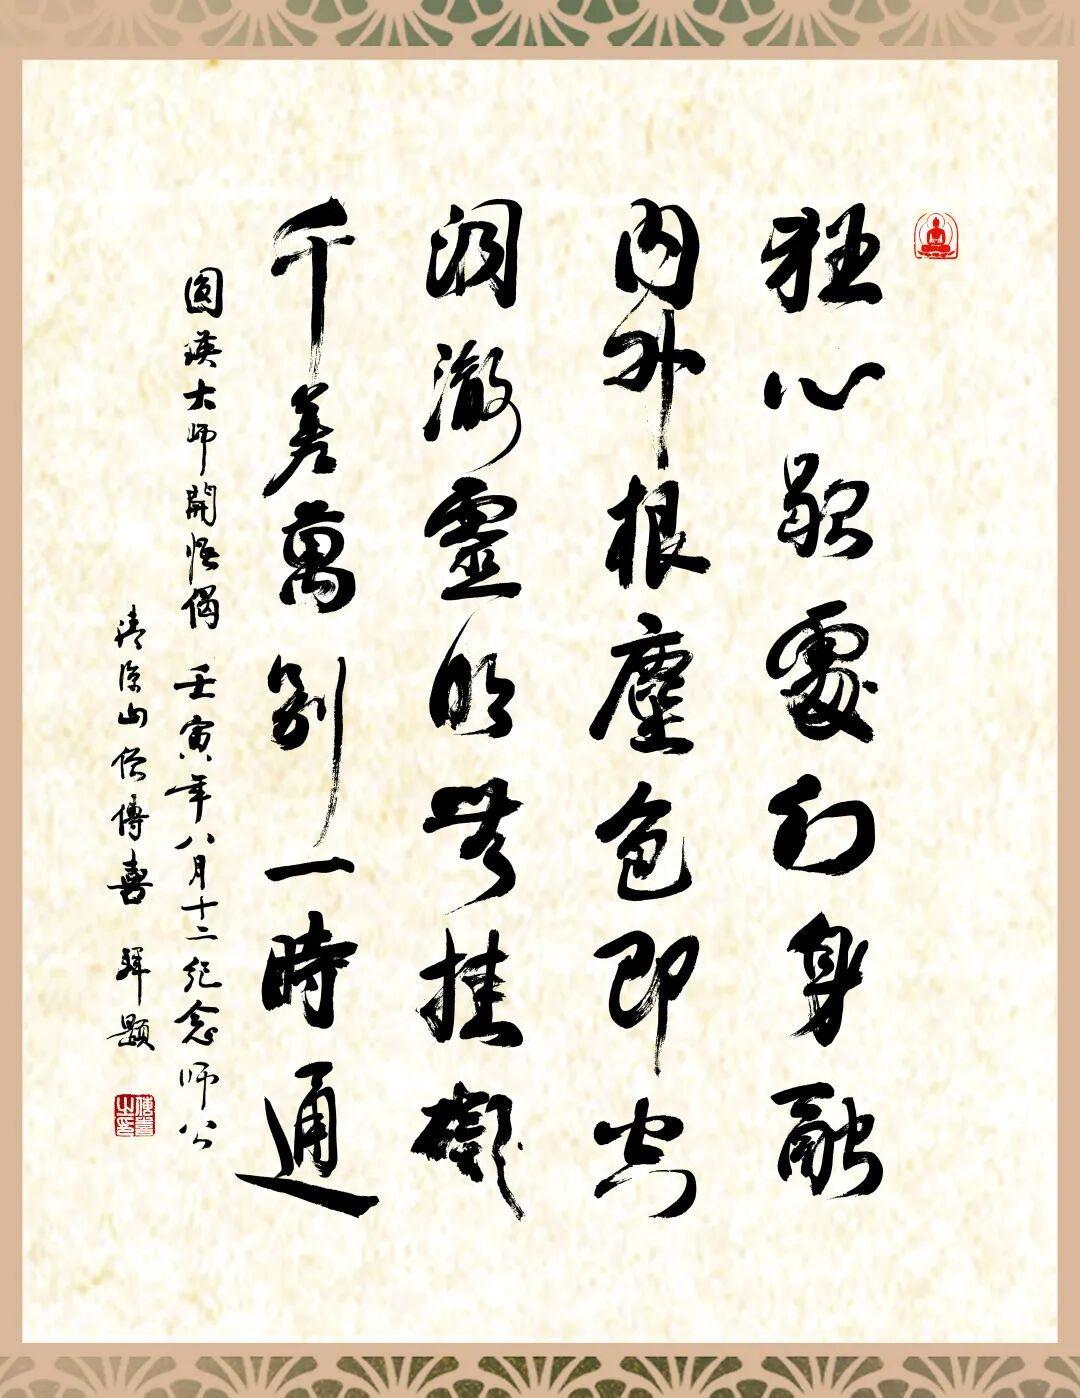 狂心歇處幻身融
内外根塵色即空
洞澈靈明無挂礙
千差萬別一時通
圓瑛大师開悟偈 壬寅年八月十二紀念师公
清涼山僧傳喜 拜題